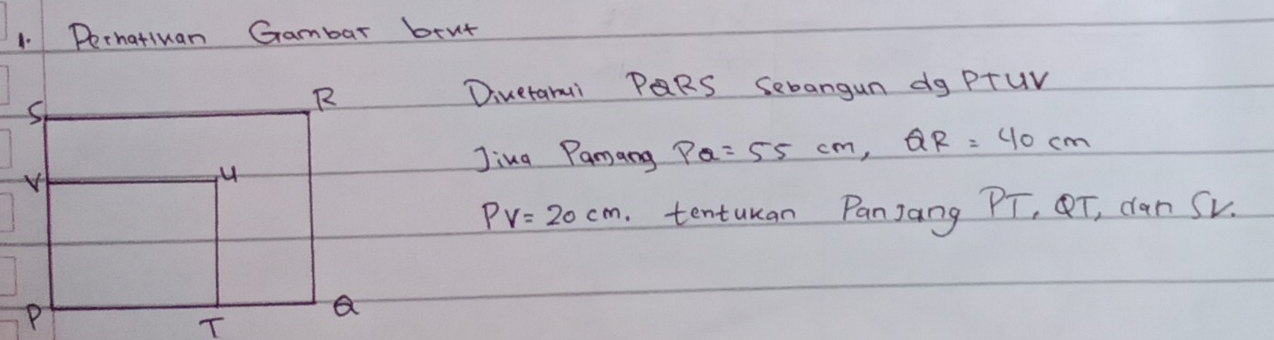 1. Perhatikan Gambar brkt
S R
Diketahui PQRS Sebangun dg PTUV
V U
Jika Panjang PQ = 55 cm, QR = 40 cm
PV = 20 cm. tentukan Panjang PT, QT, dan SV.
P T Q